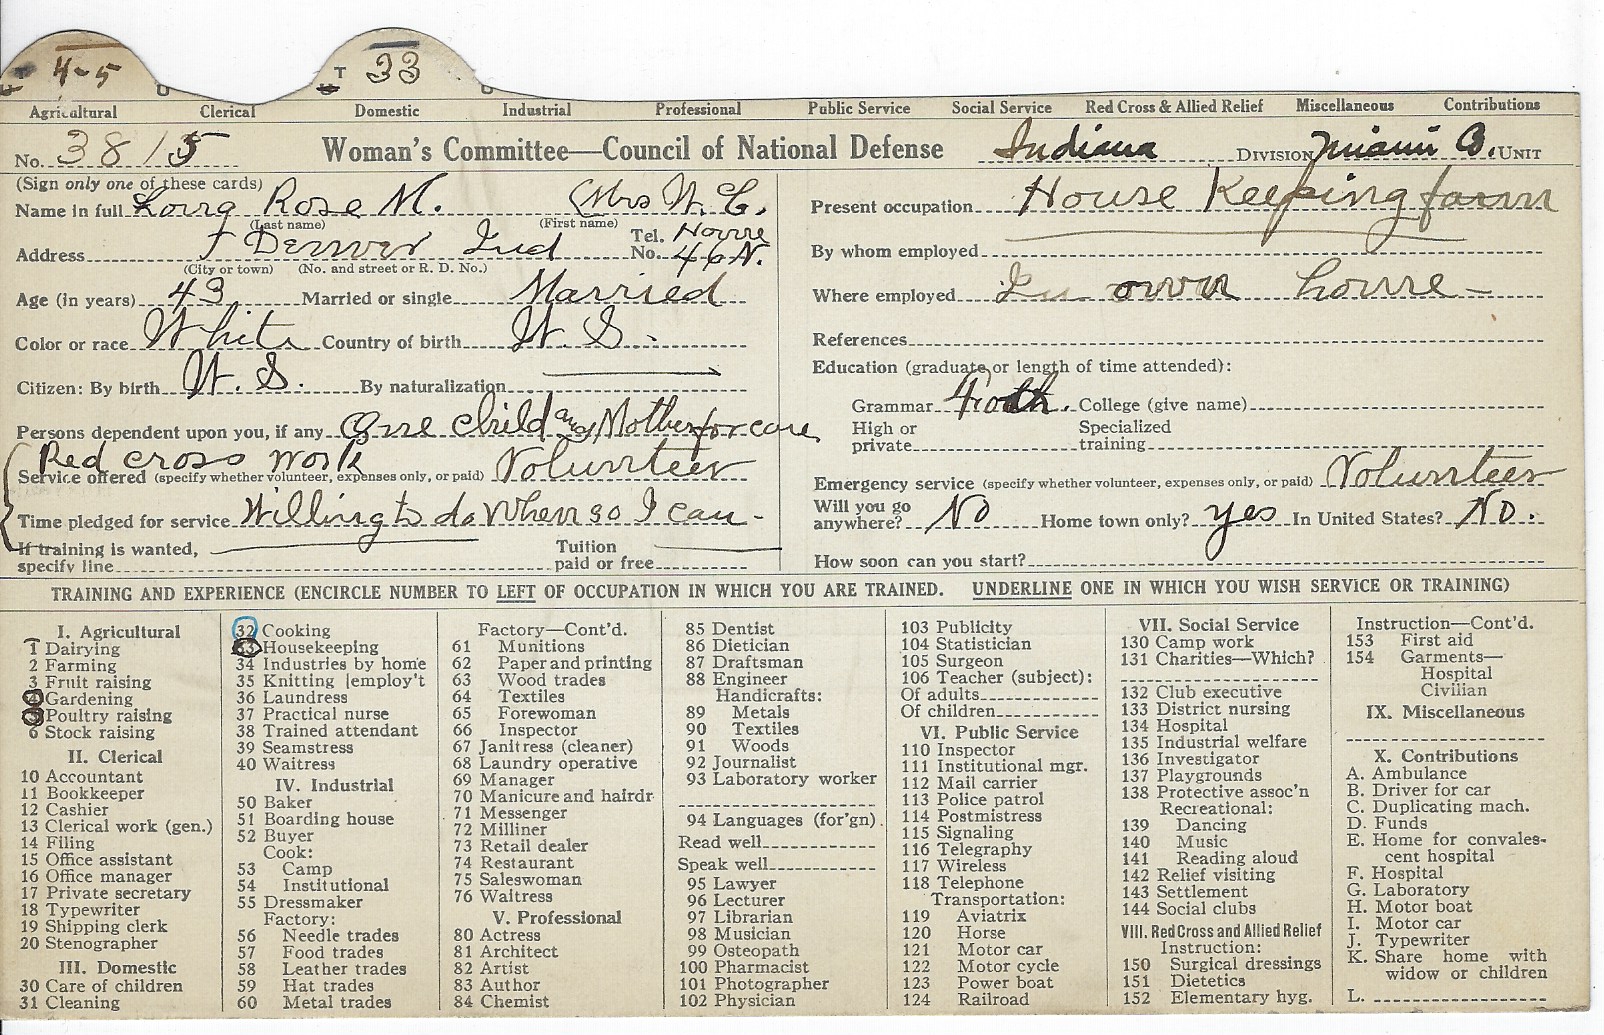 4-5 T 33
Agricultural Clerical Domestic Industrial Professional Public Service Social Service Red Cross & Allied Relief Miscellaneous Contributions
No. 3815 Woman's Committee—Council of National Defense Indiana DIVISION Miami Co. UNIT
(Sign only one of these cards)
Name in full Rose M. (Mrs W. C.
(Last name) (First name)
Address Denver Ind Tel. No. Home 46N.
(City or town) (No. and street or R. D. No.)
Age (in years) 43 Married or single Married
Color or race White Country of birth U. S.
Citizen: By birth U. S. By naturalization
Persons dependent upon you, if any One child and Mother for care
Red Cross Work
Service offered (specify whether volunteer, expenses only, or paid) Volunteer
Time pledged for service Willing to do when so I can
If training is wanted, specify line Tuition paid or free
Present occupation House Keeping farm
By whom employed
Where employed In own home
References
Education (graduate or length of time attended):
Grammar College (give name)
High or private Specialized training
Emergency service (specify whether volunteer, expenses only, or paid) Volunteer
Will you go anywhere? No Home town only? yes In United States? No.
How soon can you start?
TRAINING AND EXPERIENCE (ENCIRCLE NUMBER TO LEFT OF OCCUPATION IN WHICH YOU ARE TRAINED. UNDERLINE ONE IN WHICH YOU WISH SERVICE OR TRAINING)
I. Agricultural
1 Dairying
2 Farming
3 Fruit raising
4 Gardening
5 Poultry raising
6 Stock raising
II. Clerical
10 Accountant
11 Bookkeeper
12 Cashier
13 Clerical work (gen.)
14 Filing
15 Office assistant
16 Office manager
17 Private secretary
18 Typewriter
19 Shipping clerk
20 Stenographer
III. Domestic
30 Care of children
31 Cleaning
32 Cooking
33 Housekeeping
34 Industries by home
35 Knitting [employ't
36 Laundress
37 Practical nurse
38 Trained attendant
39 Seamstress
40 Waitress
IV. Industrial
50 Baker
51 Boarding house
52 Buyer
Cook:
53 Camp
54 Institutional
55 Dressmaker
Factory:
56 Needle trades
57 Food trades
58 Leather trades
59 Hat trades
60 Metal trades
Factory—Cont'd.
61 Munitions
62 Paper and printing
63 Wood trades
64 Textiles
65 Forewoman
66 Inspector
67 Janitress (cleaner)
68 Laundry operative
69 Manager
70 Manicure and hairdr
71 Messenger
72 Milliner
73 Retail dealer
74 Restaurant
75 Saleswoman
76 Waitress
V. Professional
80 Actress
81 Architect
82 Artist
83 Author
84 Chemist
85 Dentist
86 Dietician
87 Draftsman
88 Engineer
Handicrafts:
89 Metals
90 Textiles
91 Woods
92 Journalist
93 Laboratory worker
94 Languages (for'gn)
Read well
Speak well
95 Lawyer
96 Lecturer
97 Librarian
98 Musician
99 Osteopath
100 Pharmacist
101 Photographer
102 Physician
103 Publicity
104 Statistician
105 Surgeon
106 Teacher (subject):
Of adults
Of children
VI. Public Service
110 Inspector
111 Institutional mgr.
112 Mail carrier
113 Police patrol
114 Postmistress
115 Signaling
116 Telegraphy
117 Wireless
118 Telephone
Transportation:
119 Aviatrix
120 Horse
121 Motor car
122 Motor cycle
123 Power boat
124 Railroad
VII. Social Service
130 Camp work
131 Charities—Which?
132 Club executive
133 District nursing
134 Hospital
135 Industrial welfare
136 Investigator
137 Playgrounds
138 Protective assoc'n
Recreational:
139 Dancing
140 Music
141 Reading aloud
142 Relief visiting
143 Settlement
144 Social clubs
VIII. Red Cross and Allied Relief
Instruction:
150 Surgical dressings
151 Dietetics
152 Elementary hyg.
Instruction—Cont'd.
153 First aid
154 Garments—
Hospital
Civilian
IX. Miscellaneous
X. Contributions
A. Ambulance
B. Driver for car
C. Duplicating mach.
D. Funds
E. Home for convales-
cent hospital
F. Hospital
G. Laboratory
H. Motor boat
I. Motor car
J. Typewriter
K. Share home with
widow or children
L.